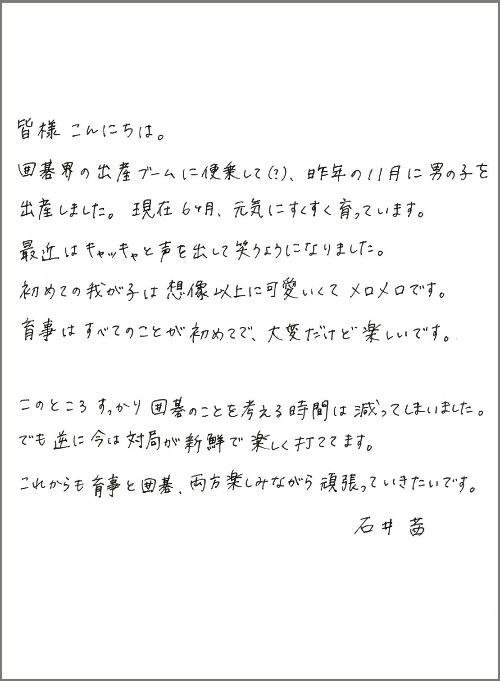 皆様 こんにちは。
囲碁界の出産ブームに便乗して(?)、昨年の11月に男の子を
出産しました。現在6ヶ月、元気にすくすく育っています。
最近はキャッキャと声を出して笑うようになりました。
初めての我が子は想像以上に可愛いくてメロメロです。
育事はすべてのことが初めてで、大変だけど楽しいです。
このところすっかり囲碁のことを考える時間は減ってしまいました。
でも逆に今は対局が新鮮で楽しく打ててます。
これからも育事と囲碁、両方楽しみながら頑張っていきたいです。
石井 茜